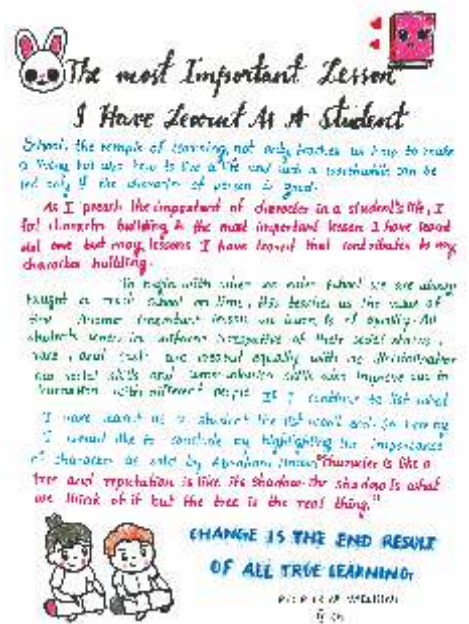 The most Important Lesson
I Have Learnt As A Student
School, the temple of learning, not only teaches us how to make
a living but also how to live a life and such a worthwhile can be
led only if the character of person is good.
As I preach the important of character in a student's life, I
feel character building is the most important lesson I have learnt
not one but many lessons I have learnt that contributes to my
character building.
To begin with when we enter school we are always
taught to reach school on time, this teaches us the value of
time. Another important lesson we learn is of equality. All
students in uniform irrespective of their social status,
race, and are treated equally with no discrimination
our social skills and communication skills also improve due to
with different people. If I continue to list what
I have learnt as a student the list won't end. So here
I would like to conclude by highlighting the importance
of character as said by Abraham Lincoln "Character is like a
tree and reputation is like its shadow. The shadow is what
we think of it but the tree is the real thing."
CHANGE IS THE END RESULT
OF ALL TRUE LEARNING.